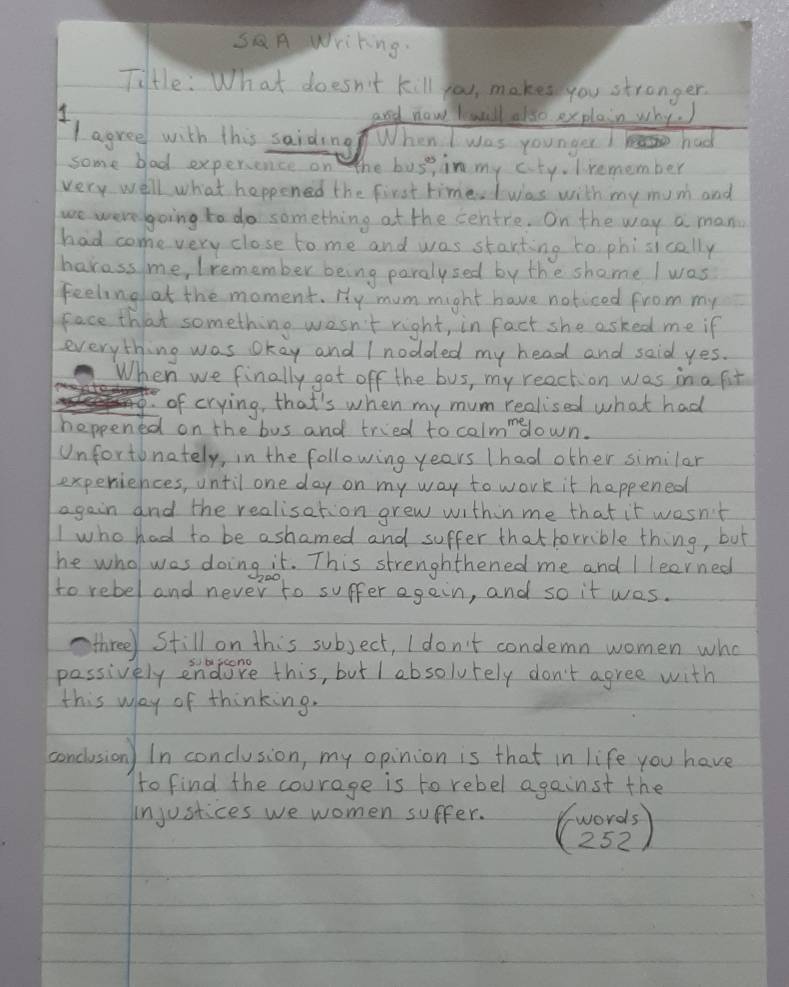 SQA Writing.
Title: What doesn't kill you, makes you stronger.
and now I will also explain why.)
1
I agree with this saiding When I was younger I had
some bad experience on the bus es, in my city. I remember
very well what happened the first time. I was with my mum and
we were going to do something at the centre. On the way a man
had come very close to me and was starting to phisically
harass me, I remember being paralysed by the shame I was
feeling at the moment. My mum might have noticed from my
face that something wasn't right, in fact she asked me if
everything was okay and I nodded my head and said yes.
When we finally got off the bus, my reaction was in a fit
of crying, that's when my mum realised what had
happened on the bus and tried to calm me down.
Unfortunately, in the following years I had other similar
experiences, until one day on my way to work it happened
again and the realisation grew within me that it wasn't
I who had to be ashamed and suffer that horrible thing, but
he who was doing it. This strenghthened me and I learned
200
to rebel and never to suffer again, and so it was.
three) Still on this subject, I don't condemn women who
subiscono
passively endure this, but I absolutely don't agree with
this way of thinking.
conclusion) In conclusion, my opinion is that in life you have
to find the courage is to rebel against the
injustices we women suffer.
(words
252)